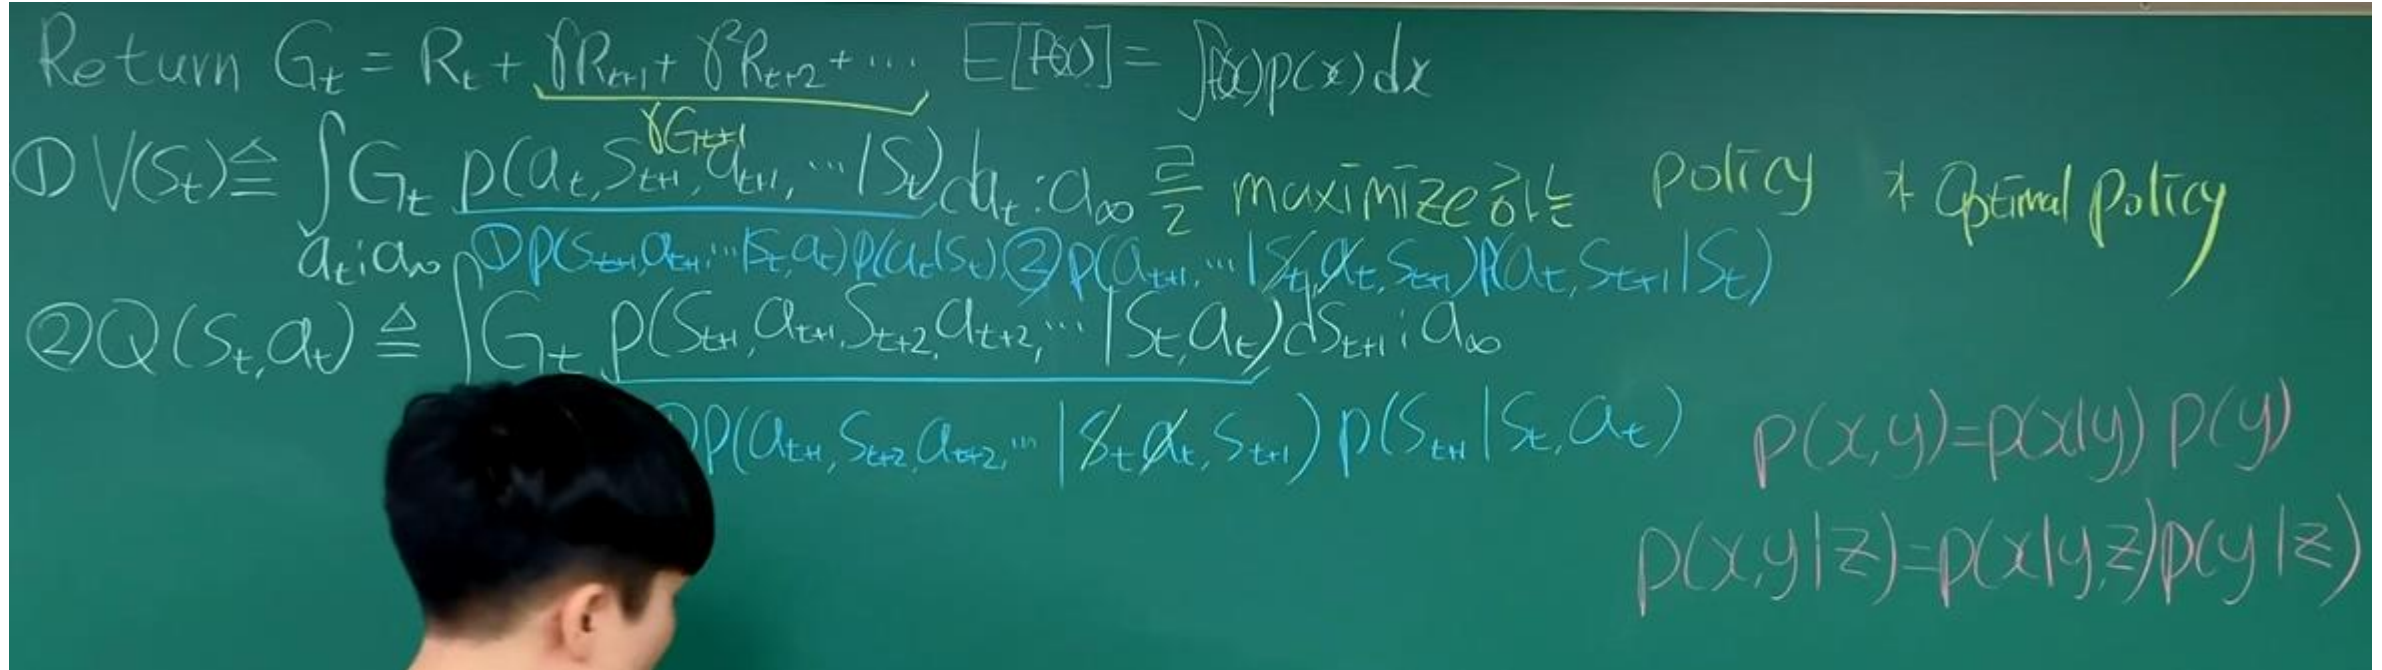 Return G_t = R_t + γR_{t+1} + γ²R_{t+2} + ⋯ E[f(x)] = ∫f(x)p(x)dx
γG_{t+1}
① V(S_t) ≜ ∫_{a_t:a_∞} G_t p(a_t, S_{t+1}, a_{t+1}, ⋯ | S_t) da_t:a_∞ 를 maximize 하는 policy * Optimal policy
① p(S_{t+1}, a_{t+1}, ⋯ | S_t, a_t) p(a_t | S_t) ② p(a_{t+1}, ⋯ | S_t, a_t, S_{t+1}) p(a_t, S_{t+1} | S_t)
② Q(S_t, a_t) ≜ ∫ G_t p(S_{t+1}, a_{t+1}, S_{t+2}, a_{t+2}, ⋯ | S_t, a_t) dS_{t+1}:a_∞
① p(a_{t+1}, S_{t+2}, a_{t+2}, ⋯ | S_t, a_t, S_{t+1}) p(S_{t+1} | S_t, a_t)
p(x,y)=p(x|y) p(y)
p(x,y|z)=p(x|y,z)p(y|z)